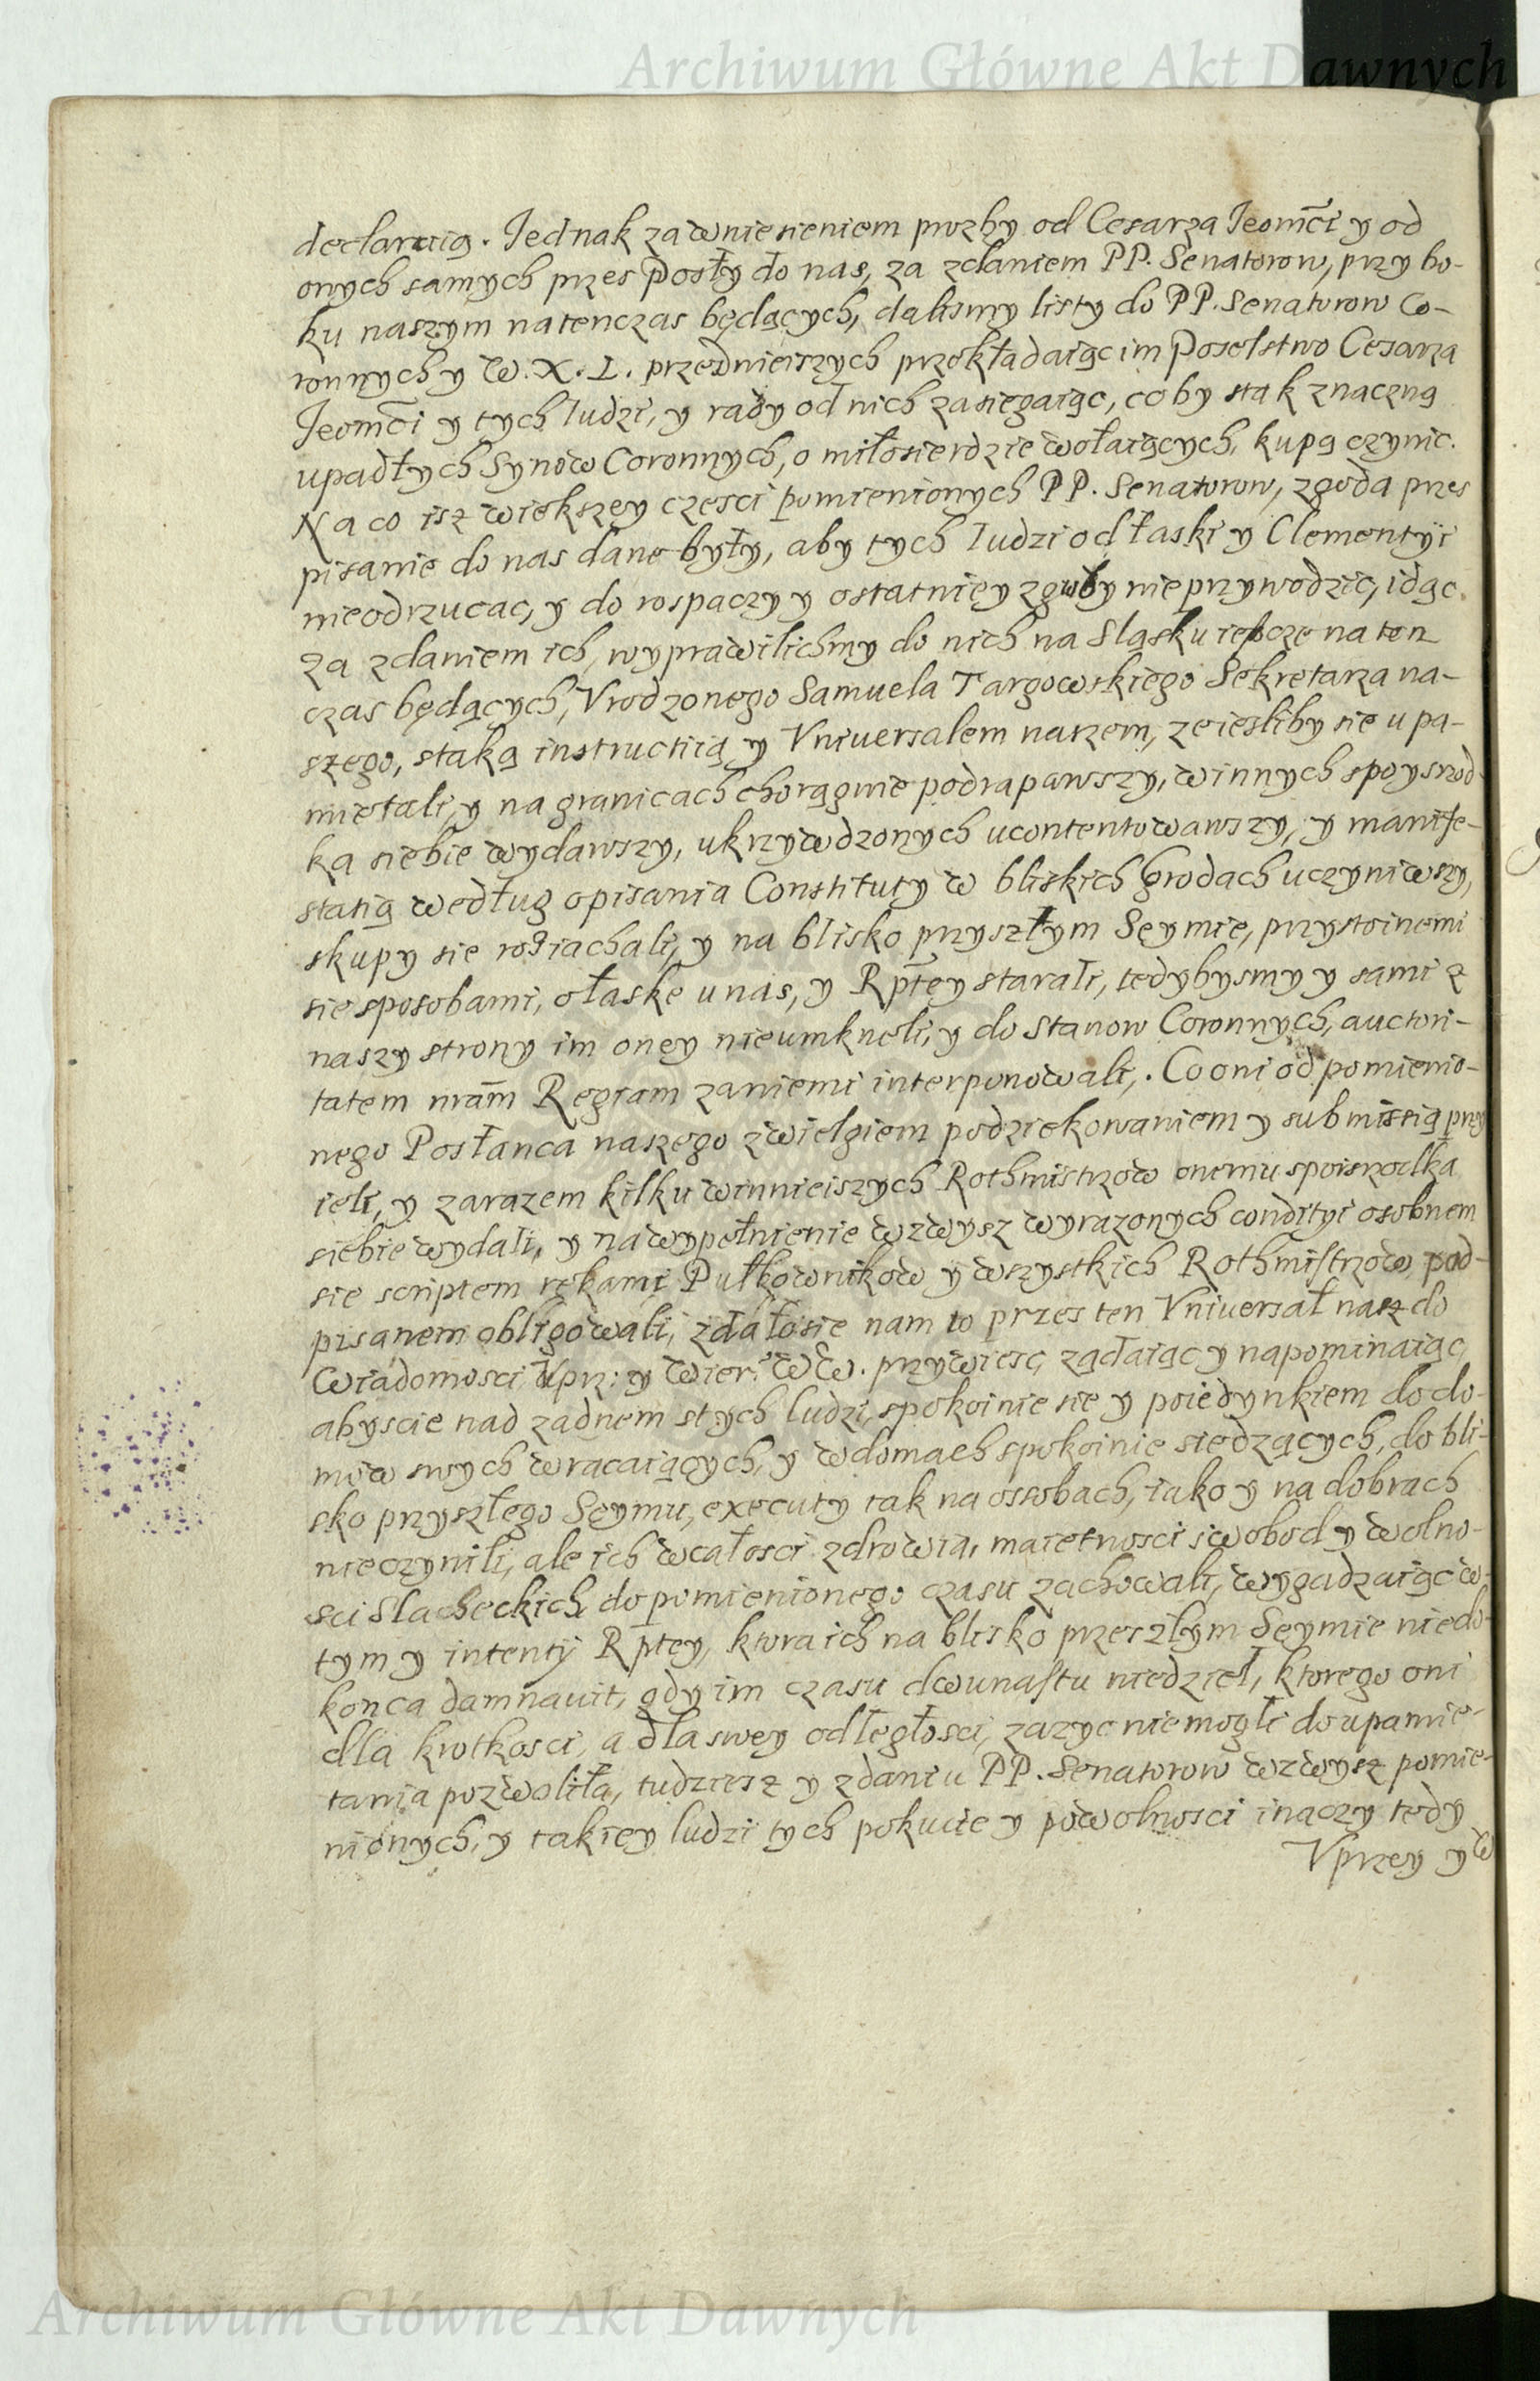 Archiwum Główne Akt Dawnych
declaruią. Jednak za wniesieniem prozby od Cesarza Jeomći y od
onych samych przes Posły do nas, za zdaniem PP. Senatorow, przy bo-
ku naszym natenczas będących, dalismy listy do PP. Senatorow Co-
ronnych y W. X. L. przednieiszych przekładaiąc im Poselstwo Cesarza
Jeomći y tych ludzi, y rady od nich zasięgaiąc, co by stak znaczną
upadłych Synow Coronnych, o miłosierdzie wołaiących, kupą czynic.
Na co isz większey czesci pomienionych PP. Senatorow, zgoda przes
pisanie do nas dane były, aby tych ludzi od łaski y Clementyi
nieodrzucac, y do rospaczy y ostatnięy zguby nie przywodzic, idąc
za zdaniem ich, wyprawilichmy do nich na Sląsku ieszcze na ten
czas będących, Vrodzonego Samuela Targowskiego Sekretarza na-
szego, staką instructią y Vniuersalem naszem, ze iesliby sie upa-
mietali, y na granicach chorągwie podrapawszy, winnych spoysrod
ka siebie wydawszy, ukrzywdzonych ucontentowawszy, y manife-
statią według opisania Constituty w bliskich grodach uczyniwszy,
skupy sie roziachali, y na blisko przyszłym Sęymie, przystoinemi
sie sposobami, o łaske u nas, y Rptęy starali, tedybysmy y sami z
naszy strony im onęy nieumkneli, y do Stanow Coronnych, auctori-
tatem nram Regiam zaniemi interponowali,. Co oni od pomienio-
nego Posłanca naszego zwielgiem podziekowaniem y submissią przy
ieli, y zarazem kilku winnieiszych Rothmistrzow onemu spoisrodka
siebie wydali, y na wypełnienie wzwysz wyrazonych condityi osobnem
sie scriptem rękami Pułkownikow y wszystkich Rothmistrzow pod-
pisanem obligowali, zdało sie nam to przes ten Vniuersał nasz do
Wiadomosci Vpr: y Wier: WW. przywiesc, ządaiąc y napominaiąc,
abyscie nad zadnem stych ludzi, spokoinie sie y poiedynkiem do do-
mow swych wracaiących, y w domach spokoinie siedzących, do bli-
sko przyszłego Sęymu, executy tak na ossobach, iako y na dobrach
nieczynili, ale ich wcałosci zdrowia, maietnosci swobod y wolno-
sci Slacheckich do pomienionego czasu zachowali, wygadzaiąc w
tym y intenty Rptey, ktora ich na blisko przeszłym Sęymie niedo-
konca damnauit, gdy im czasu dwunastu niedziel, ktorego oni
dla krotkosci, a dla swey odległosci, zazyc niemogli do upamie-
tania pozwoliła, tudziesz y zdaniu PP. Senatorow wzwysz pomie-
nionych, y takiey ludzi tych pokucie y powolnosci inaczy tedy
Vprzey y W
Archiwum Główne Akt Dawnych